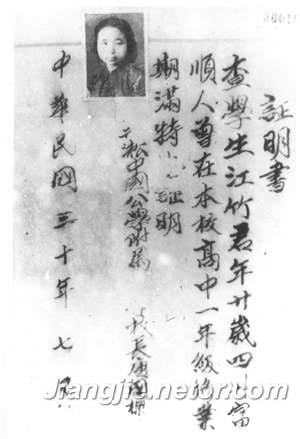 証明書
查學生江竹君年廿歲四川富
順人曾在本校高中一年級肄業
期滿特此証明
吳淞中國公學附屬
校長
中華民國三十年七月
Jiangjie.netor.com